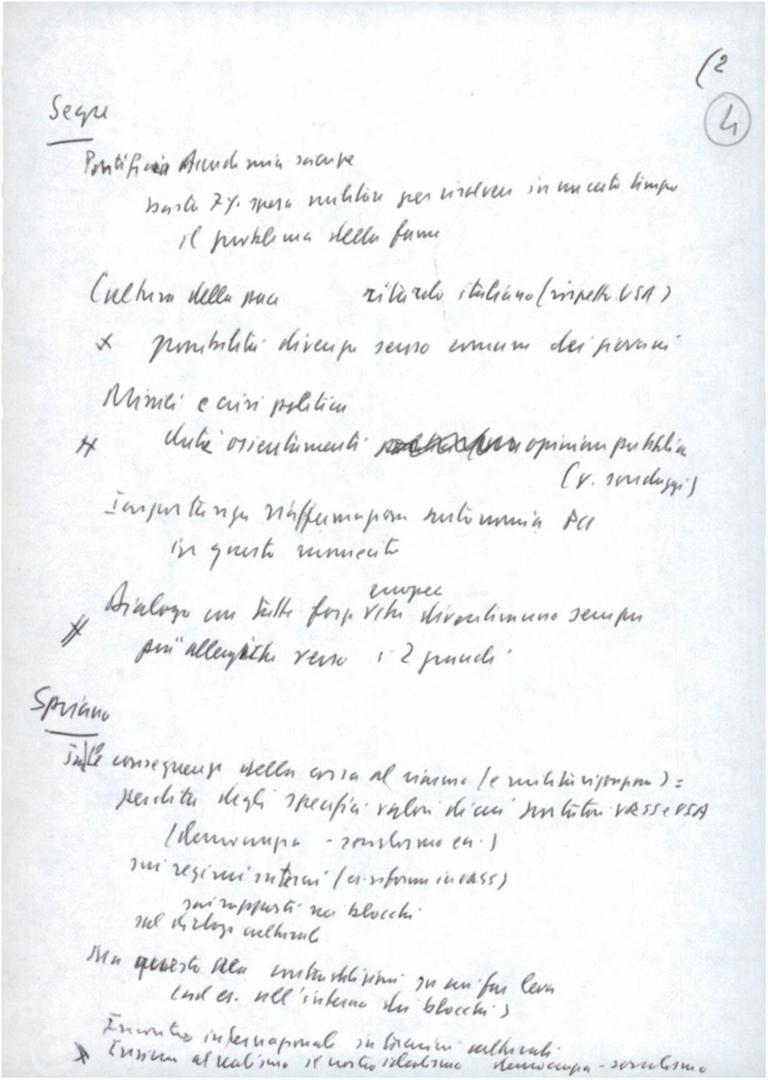 (2
4
Segre
Pontificia Accademia scienze
basta 7%. spesa militare per risolvere in un certo tempo
il problema della fame
Cultura della pace ritardo italiano (rispetto USA)
x possibilità divenga senso comune dei giovani
Missili e crisi politica
x orientamenti opinione pubblica
(v. sondaggi)
Importanza riaffermazione autonomia PCI
in questo momento
europee
Dialogo con tutte forze che diventeranno sempre
x più allergiche verso i 2 grandi
Spriano
Sulle conseguenze della corsa al riarmo (e militarizzazione) =
perdita degli specifici valori di cui portatori URSS e USA
(democrazia - socialismo ecc.)
sui regimi interni (es. riforme in URSS)
sui rapporti nei blocchi
sul dialogo culturale
Ma questo crea contraddizioni su cui far leva
(ad es. all'interno dei blocchi)
Incontro internazionale in termini culturali
x Insieme al realismo il nostro idealismo democrazia - socialismo